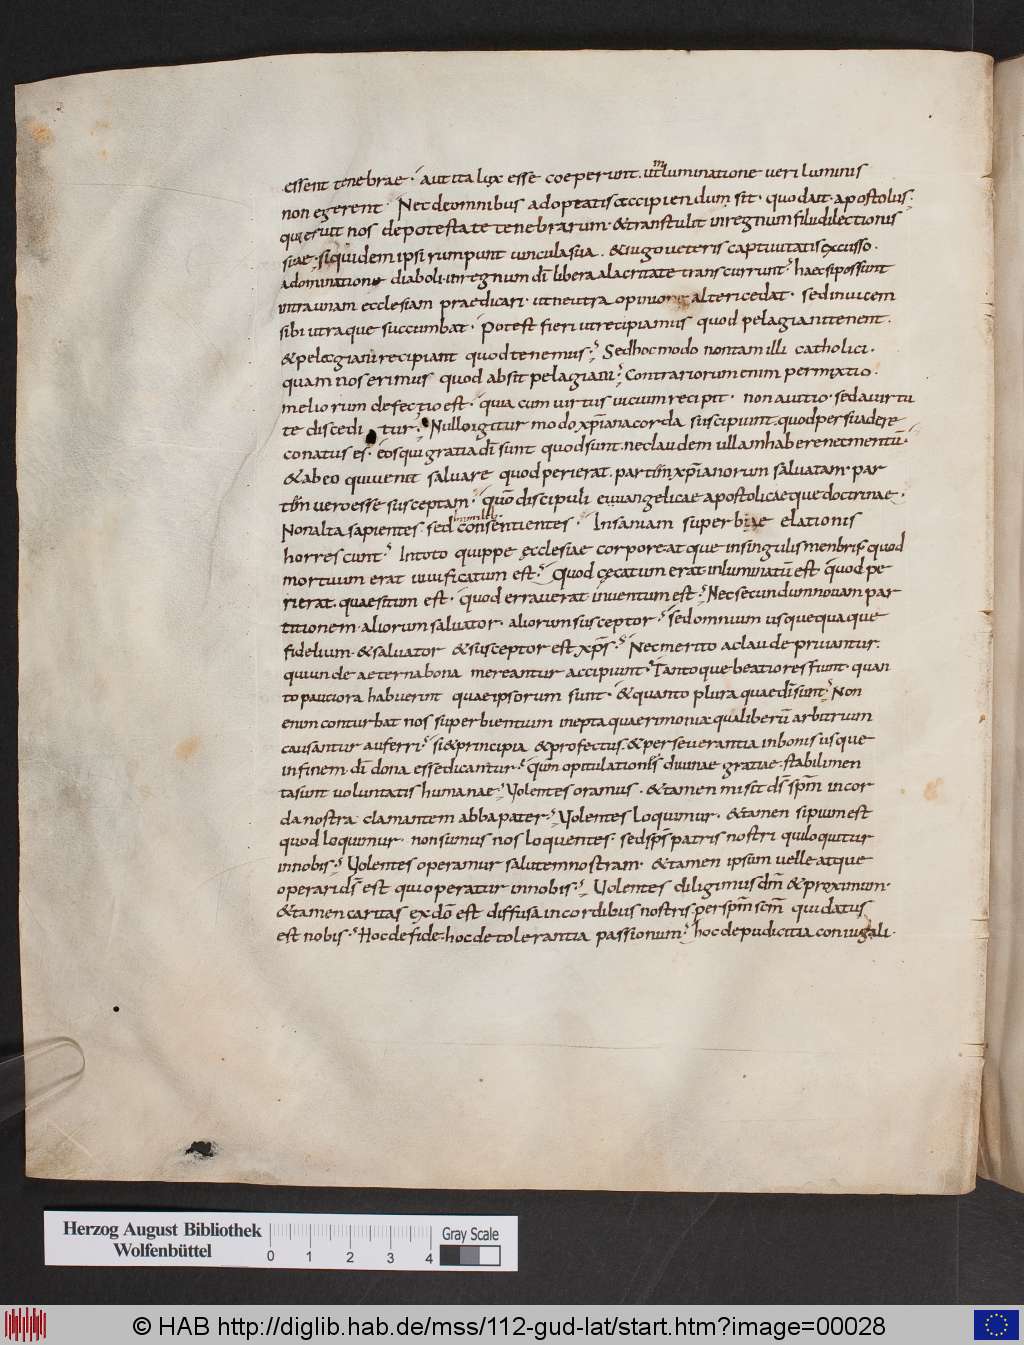 essent tenebrae · aut ita lux esse coeperunt · ut inluminatione veri luminis
non egerent · Nec de omnibus ad op&atis accipiendum sit · quod ait apostolus ·
qui eruit nos de potestate tenebrarum · & transtulit in regnum filii dilectionis
suae · siquidem ipsi rumpunt vincula sua · & iugo veteris captivitatis excusso ·
a dominatione diaboli · in regnum dī libera alacritate transcurrunt · haec si possunt
intra unam ecclesiam praedicari · ut neutra opinion alteri cedat · sed invicem
sibi utraque succumbat · Potest fieri ut recipiamus quod pelagiani tenent ·
& pelagiani recipiant quod tenemus · Sed hoc modo non tam illi catholici ·
quam nos erimus quod absit pelagiani · Contrariorum enim permixtio ·
meliorum defectio est · quia cum virtus vicium recipit · non a vitio · sed a virtu
te discedi tur · Nullo igitur modo xp̄iana corda suscipiunt · quod persuadere
conatus es · eos qui gratia dī sunt quod sunt · nec laudem ullam habere nec mentū ·
& ab eo qui venit salvare quod perierat · partim xp̄ianorum salvatam · par
tim vero esse susceptam · quō discipuli evvangelicae apostolicaeque doctrinae ·
Non alta sapientes · sed humilib; consentientes · Insaniam superbiae elationis
horrescunt · In toto quippe ecclesiae corpore atque in singulis menbris · quod
mortuum erat vivificatum est · Quod cęcatum erat inluminatū est · quod pe
rierat · quaesitum est · quod erraverat inventum est · Nec secundum novam par
titionem · aliorum salvator · aliorum susceptor · sed omnium usquequaque
fidelium · & salvator & susceptor est xp̄s · Nec merito ac laude privantur ·
qui unde aeterna bona mereantur accipiunt · Tantoque beatiores fiunt · quan
to pauciora habuerint quae ipsorum sunt · & quanto plura quae dī sunt · Non
enim conturbat nos superbientium inepta quaerimonia · qua liberū arbitrium
causantur auferri · si & principia & profectus · & perseverantia in bonis usque
in finem · dī dona esse dicantur · qūm opitulationes divinae gratiae · stabilimen
ta sunt voluntatis humanae · Volentes oramus · & tamen misit d̄s sp̄m in cor
da nostra clamantem abba pater · Volentes loquimur · & tamen si pium est
quod loquimur · non sumus nos loquentes · sed sp̄s patris nostri qui loquitur
in nobis · Volentes operamur salutem nostram · & tamen ipsum velle atque
operari d̄s est qui operatur in nobis · Volentes diligimus dm̄ & proximum ·
& tamen caritas ex dō est diffusa in cordibus nostris · per sp̄m scm̄ qui datus
est nobis · Hoc de fide · hoc de tolerantia passionum · hoc de pudicitia coniugali ·
Herzog August Bibliothek
Wolfenbüttel
0 1 2 3 4
Gray Scale
© HAB http://diglib.hab.de/mss/112-gud-lat/start.htm?image=00028